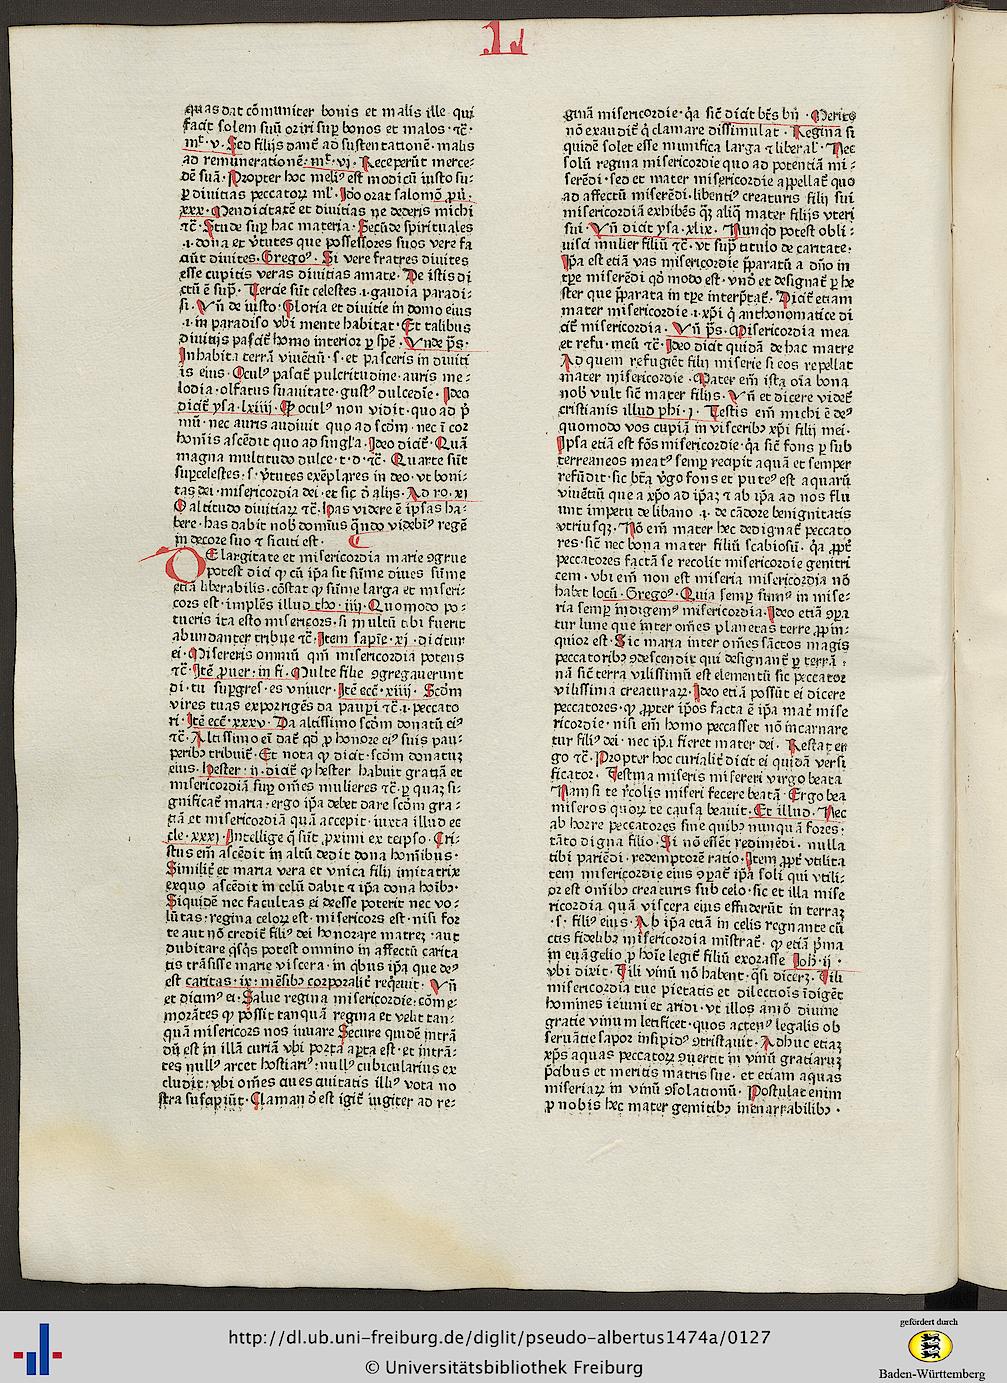 .L.
quas dat cōmuniter bonis et malis ille qui
facit solem suū oriri suꝑ bonos et malos · ⁊c̄ ·
mt̄ · v · Sed filijs dant̄ ad sustentationē · malis
ad remunerationē · mt̄ · vi · Receperūt merce-
dē suā · Propter hoc meliꝰ est modicū iusto su-
ꝑ diuitias peccatoꝝ ml̄ · Ido orat salomō ꝓu̅ ·
xxx · Mendicitatē et diuitias ne dederis michi
⁊c̄ · Stude suꝑ hac materia · Secūde spirituales
.i. dona et v̄tutes que possessores suos vere fa
ciūt diuites · Gregoꝰ · Si vere fratres diuites
esse cupitis veras diuitias amate · De istis di
ctū ē supͣ · Tercie sūt celestes .i. gaudia paradi-
si · Vn̄ de iusto · Gloria et diuitie in domo eius
.i. in paradiso vbi mente habitat · Et talibus
diuitijs pascit̄ homo interior ꝑ spē · Vnde p̄s ·
Inhabita terrā viuētiū · s · et pasceris in diuiti
is eius · Oculꝰ pascit̄ pulcritudine · auris me-
lodia · olfatus suauitate · gustꝰ dulcedīe · Ideo
dicit̄ ysa · lxiiij · Ꝙ oculꝰ non vidit · quo ad p̄
mū · nec auris audiuit quo ad scd̄m · nec ī cor
homīs ascēdit quo ad singl̄a · Ideo dicit̄ · Quā
magna multitudo dulce · t · d · ⁊c̄ · Quarte sūt
suꝑcelestes · s · v̄tutes exēplares in deo · vt boni-
tas dei · misericordia dei · et sic d̄ alijs · Ad ro · xi
O altitudo diuitiaꝝ ⁊c̄ · has videre ē ip̄sas ha-
bere · has dabit nob̄ domīus qn̄do videbiꝰ regē
in decore suo ⁊ sicuti est ·
DE largitate et misericordia marie ꝯgrue
potest dici ꝙ cū ip̄a sit sūme diues sūme
etiā liberabilis · cōstat ꝙ sūme larga et miseri-
cors est · implēs illud tho · iiij · Quomodo po-
tueris ita esto misericors · si multū tibi fuerit
abundanter tribue ⁊c̄ · Item sapīe · xi · dicitur
ei · Misereris omniū qm̄ misericordia potens
⁊c̄ · Itē ꝓuer · in fi · Multe filie ꝯgregauerunt
di · tu suꝑgres · es vniuer · Itē ecc̄ · xiiij · Scd̄m
vires tuas exporrigēs da pauꝑi ⁊c̄ .i. peccato
ri · Itē ecc̄ · xxxv · Da altissimo scd̄m donatū eiꝰ
⁊c̄ · Altissimo ei̅ dat̄ qd̄ ꝓ honore eiꝰ suis pau-
peribꝫ tribuit̄ · Et nota ꝙ dicit · scd̄m donatuꝫ
eius · Hester · ij · dicit̄ ꝙ hester habuit gratiā et
misericordiā suꝑ om̄es mulieres ⁊c̄ · ꝑ quaꝫ si-
gnificat̄ maria · ergo ip̄a debet dare scd̄m gra-
tiā et misericordiā quā accepit · iuxta illud ec
cle · xxxi · Intellige q̄ sūt ꝓximi ex teipso · Cri-
stus em̄ ascēdit in altū dedit dona homībus ·
Similit̄ et maria vera et vnica filij imitatrix
exquo ascēdit in celū dabit ⁊ ip̄a dona hoībꝫ ·
Siquidē nec facultas ei deesse poterit nec vo-
lūtas · regina celoꝝ est · misericors est · nisi for
te aut nō credit̄ filiꝰ dei honorare matreꝫ · aut
dubitare qͥsqͣs potest omnino in affectū carita
tis trāsisse marie viscera · in qͥbus ip̄a que deꝰ
est caritas · ix · mēsibꝫ corporalit̄ reqͥeuit · Vn̄
et dicimꝰ ei · Salue regina misericordie · cōme-
morātes ꝙ possit tanquā regina et velit tan-
quā misericors nos iuuare Secure quidē intrā
dū est in illā curiā vbi porta aꝑta est · et intrā-
tes nullꝰ arcet hostiariꝰ · nullꝰ cubicularius ex
cludit · vbi om̄es ciues ciuitatis illiꝰ vota no
stra suscipiūt · Clamandū est igit̄ iugiter ad re-
ginā misericordie · qͣ sic̄ dicit bt̄s bn̄ · Merito
nō exaudit̄ qͥ clamare dissimulat · Regina si
quidē solet esse munifica larga ⁊ liberal̄ · Nec
solū regina misericordie quo ad potentiā mi-
serēdi · sed et mater misericordie appellat̄ quo
ad affectū miserēdi · libentiꝰ creaturis filij sui
misericordiā exhibēs qͣꝫ aliqͣ mater filijs vteri
sui · Vn̄ dicit ysa · xlix · Nunqͥd potest obli-
uisci mulier filiū ⁊c̄ · vt supͣ titulo de caritate ·
Ip̄a est etiā vas misericordie p̄paratū a dn̄o in
tp̄e miserēdi qd̄ modo est · vnd̄ et designat̄ ꝑ he
ster que p̄parata in tp̄e interp̄tat̄ · Dicit̄ etiam
mater misericordie .i. xp̄i qͥ anthonomatice di
cit̄ misericordia · Vn̄ p̄s · Misericordia mea
et refu · meū ⁊c̄ · Ideo dicit quidā de hac matre
Ad quem refugiēt filij miserie si eos repellat
mater misericordie · Mater em̄ ista oīa bona
nob̄ vult sic̄ mater filijs · Vn̄ et dicere videt̄
cristianis illud phi · i · Testis em̄ michi ē deꝰ
quomodo vos cupiā in visceribꝫ xp̄i filij mei ·
Ipsa etiā est fōs misericordie · qͣ sic̄ fons ꝑ sub
terreneos meatꝰ semꝑ recipit aquā et semper
refūdit · sic btā v̄go fons et puteꝰ est aquarū
viuētiū que a xp̄o ad ip̄aꝫ ⁊ ab ip̄a ad nos flu
unt impetu de libano .i. de cādore benignitatis
vtriusqꝫ · Nō em̄ mater hec dedignat̄ peccato
res · sic̄ nec bona mater filiū scabiosū · qͣ ꝓpt̄
peccatores factā se recolit misericordie genitri
cem · vbi em̄ non est miseria misericordia nō
habet locū · Gregoꝰ · Quia semꝑ sumꝰ in mise-
ria semꝑ indigemꝰ misericordia · Ideo etiā ꝯꝑa
tur lune que inter om̄es planetas terre ꝓpin-
quior est · Sic maria inter om̄es sāctos magis
peccatoribꝫ ꝯdescendit qui designant̄ ꝑ terrā ·
nā sic̄ terra vilissimū est elementū sic peccator
vilissima creaturaꝝ · Ideo etiā possūt ei dicere
peccatores · ꝙ ꝓpter ip̄os facta ē ip̄a mat̄ mise
ricordie · nisi em̄ homo peccasset nō incarnare
tur filiꝰ dei · nec ip̄a fieret mater dei · Restat er
go ⁊c̄ · Propter hoc curialit̄ dicit ei quidā versi
ficator · Festina miseris misereri virgo beata
Nam si te r̄colis miseri fecere beatā · Ergo bea
miseros quoꝝ te causa beauit · Et illud · Nec
ab horre peccatores sine quibꝫ nunquā fores ·
tāto digna filio · Si nō essēt redimēdi · nulla
tibi pariēdi · redemptorē ratio · Item ꝓpt̄ vtilita
tem misericordie eius ꝯꝑat̄ ip̄a soli qui vtili-
or est om̄ibꝫ creaturis sub celo · sic et illa mise
ricordia quā viscera eius effuderūt in terraꝫ
· s · filiꝰ eius · Ab ip̄a etiā in celis regnante cū
ctis fidelibꝫ misericordia mistrat̄ · ꝙ etiā p̄ma
in euāgelio ꝓ hoīe legit̄ filiū exorasse Joh̄ · ij ·
vbi dixit · Fili vinū nō habent · qͣsi dicereꝫ · Fili
misericordia tue pietatis et dilectiōis īdigēt
homines ieiuni et aridi · vt illos aīmō diuine
gratie vinum letificet · quos actenꝰ legalis ob
seruātie sapor insipidꝰ ꝯtristauit · Adhuc etiaꝫ
xp̄s aquas peccatoꝝ ꝯuertit in vinū gratiaruꝫ
p̄cibus et meritis matris sue · et etiam aquas
miseriaꝝ in vinū ꝯsolationū · Postulat enim
ꝓ nobis hec mater gemitibꝫ inenarrabilibꝫ ·
http://dl.ub.uni-freiburg.de/diglit/pseudo-albertus1474a/0127
© Universitätsbibliothek Freiburg
gefördert durch
Baden-Württemberg